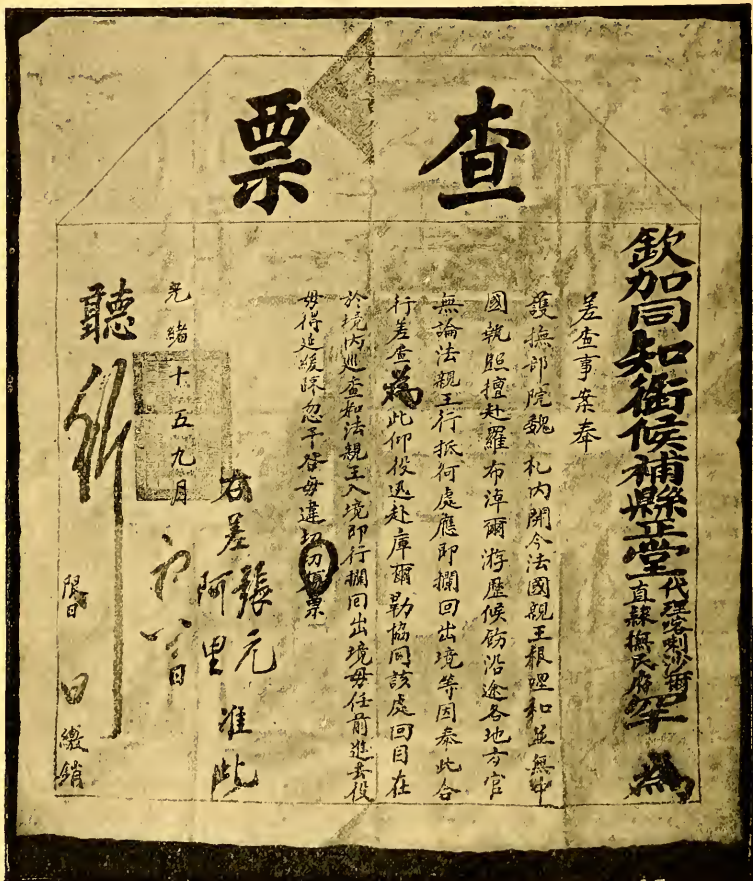 查票
欽加同知銜候補縣正堂代理喀喇沙爾直隸撫民府 為
差查事案奉
護撫部院魏 札內開今法國親王根理和並無中
國執照擅赴羅布淖爾游歷候飭沿途各地方官
無論法親王行抵何處應即攔回出境等因奉此合
行差查為此仰役迅赴庫爾勒協同該處回目在
於境內巡查如法親王入境即行攔回出境毋任前進去役
毋得延緩踩忽干咎毋違切切須票
右差張元 准此
阿里
光緒十五九月初八日
聽
限 日 日繳銷